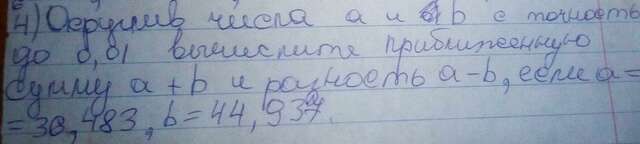 4) Округлив числа a и b с точность
до 0,01 вычислите приближенную
сумму a + b и разность a - b, если a =
= 38,483, b = 44,937.